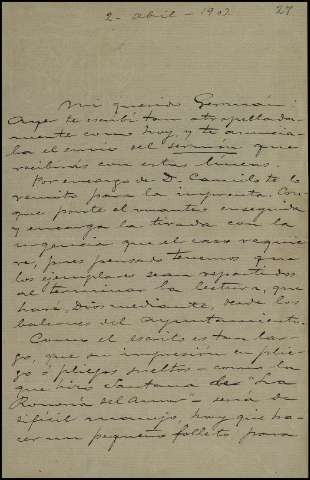 2 - abril - 1902
27
Mi querido Germán:
Ayer te escribí tan atropellada-
mente como hoy, y te anuncia-
ba el envío del sermón que
recibirás con estas líneas.
Por encargo de D. Camilo te lo
remito para la imprenta. Con
que ponte el mantes enseguida
y encarga la tirada con la
urgencia que el caso requie-
re, pues pensado tenemos que
los ejemplares sean repartidos
al terminar la lectura, que
hará, Dios mediante, desde los
balcones del ayuntamiento.
Como el escrito es tan lar-
go, que su impresión en plie-
go ó pliegos sueltos - como la
que hizo Santana de "La
Romería del Amor" - sería de
difícil manejo, hay que ha-
cer un pequeño folleto, para